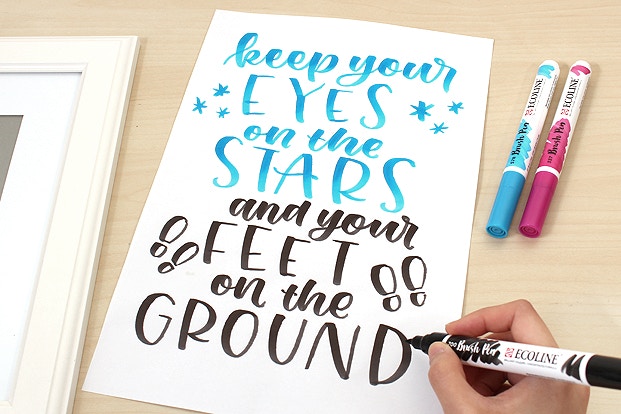 keep your
EYES
on the
STARS
and your
FEET
on the
GROUND
Brush Pen
ECOLINE
Brush Pen
ECOLINE
700 Brush Pen
ECOLINE